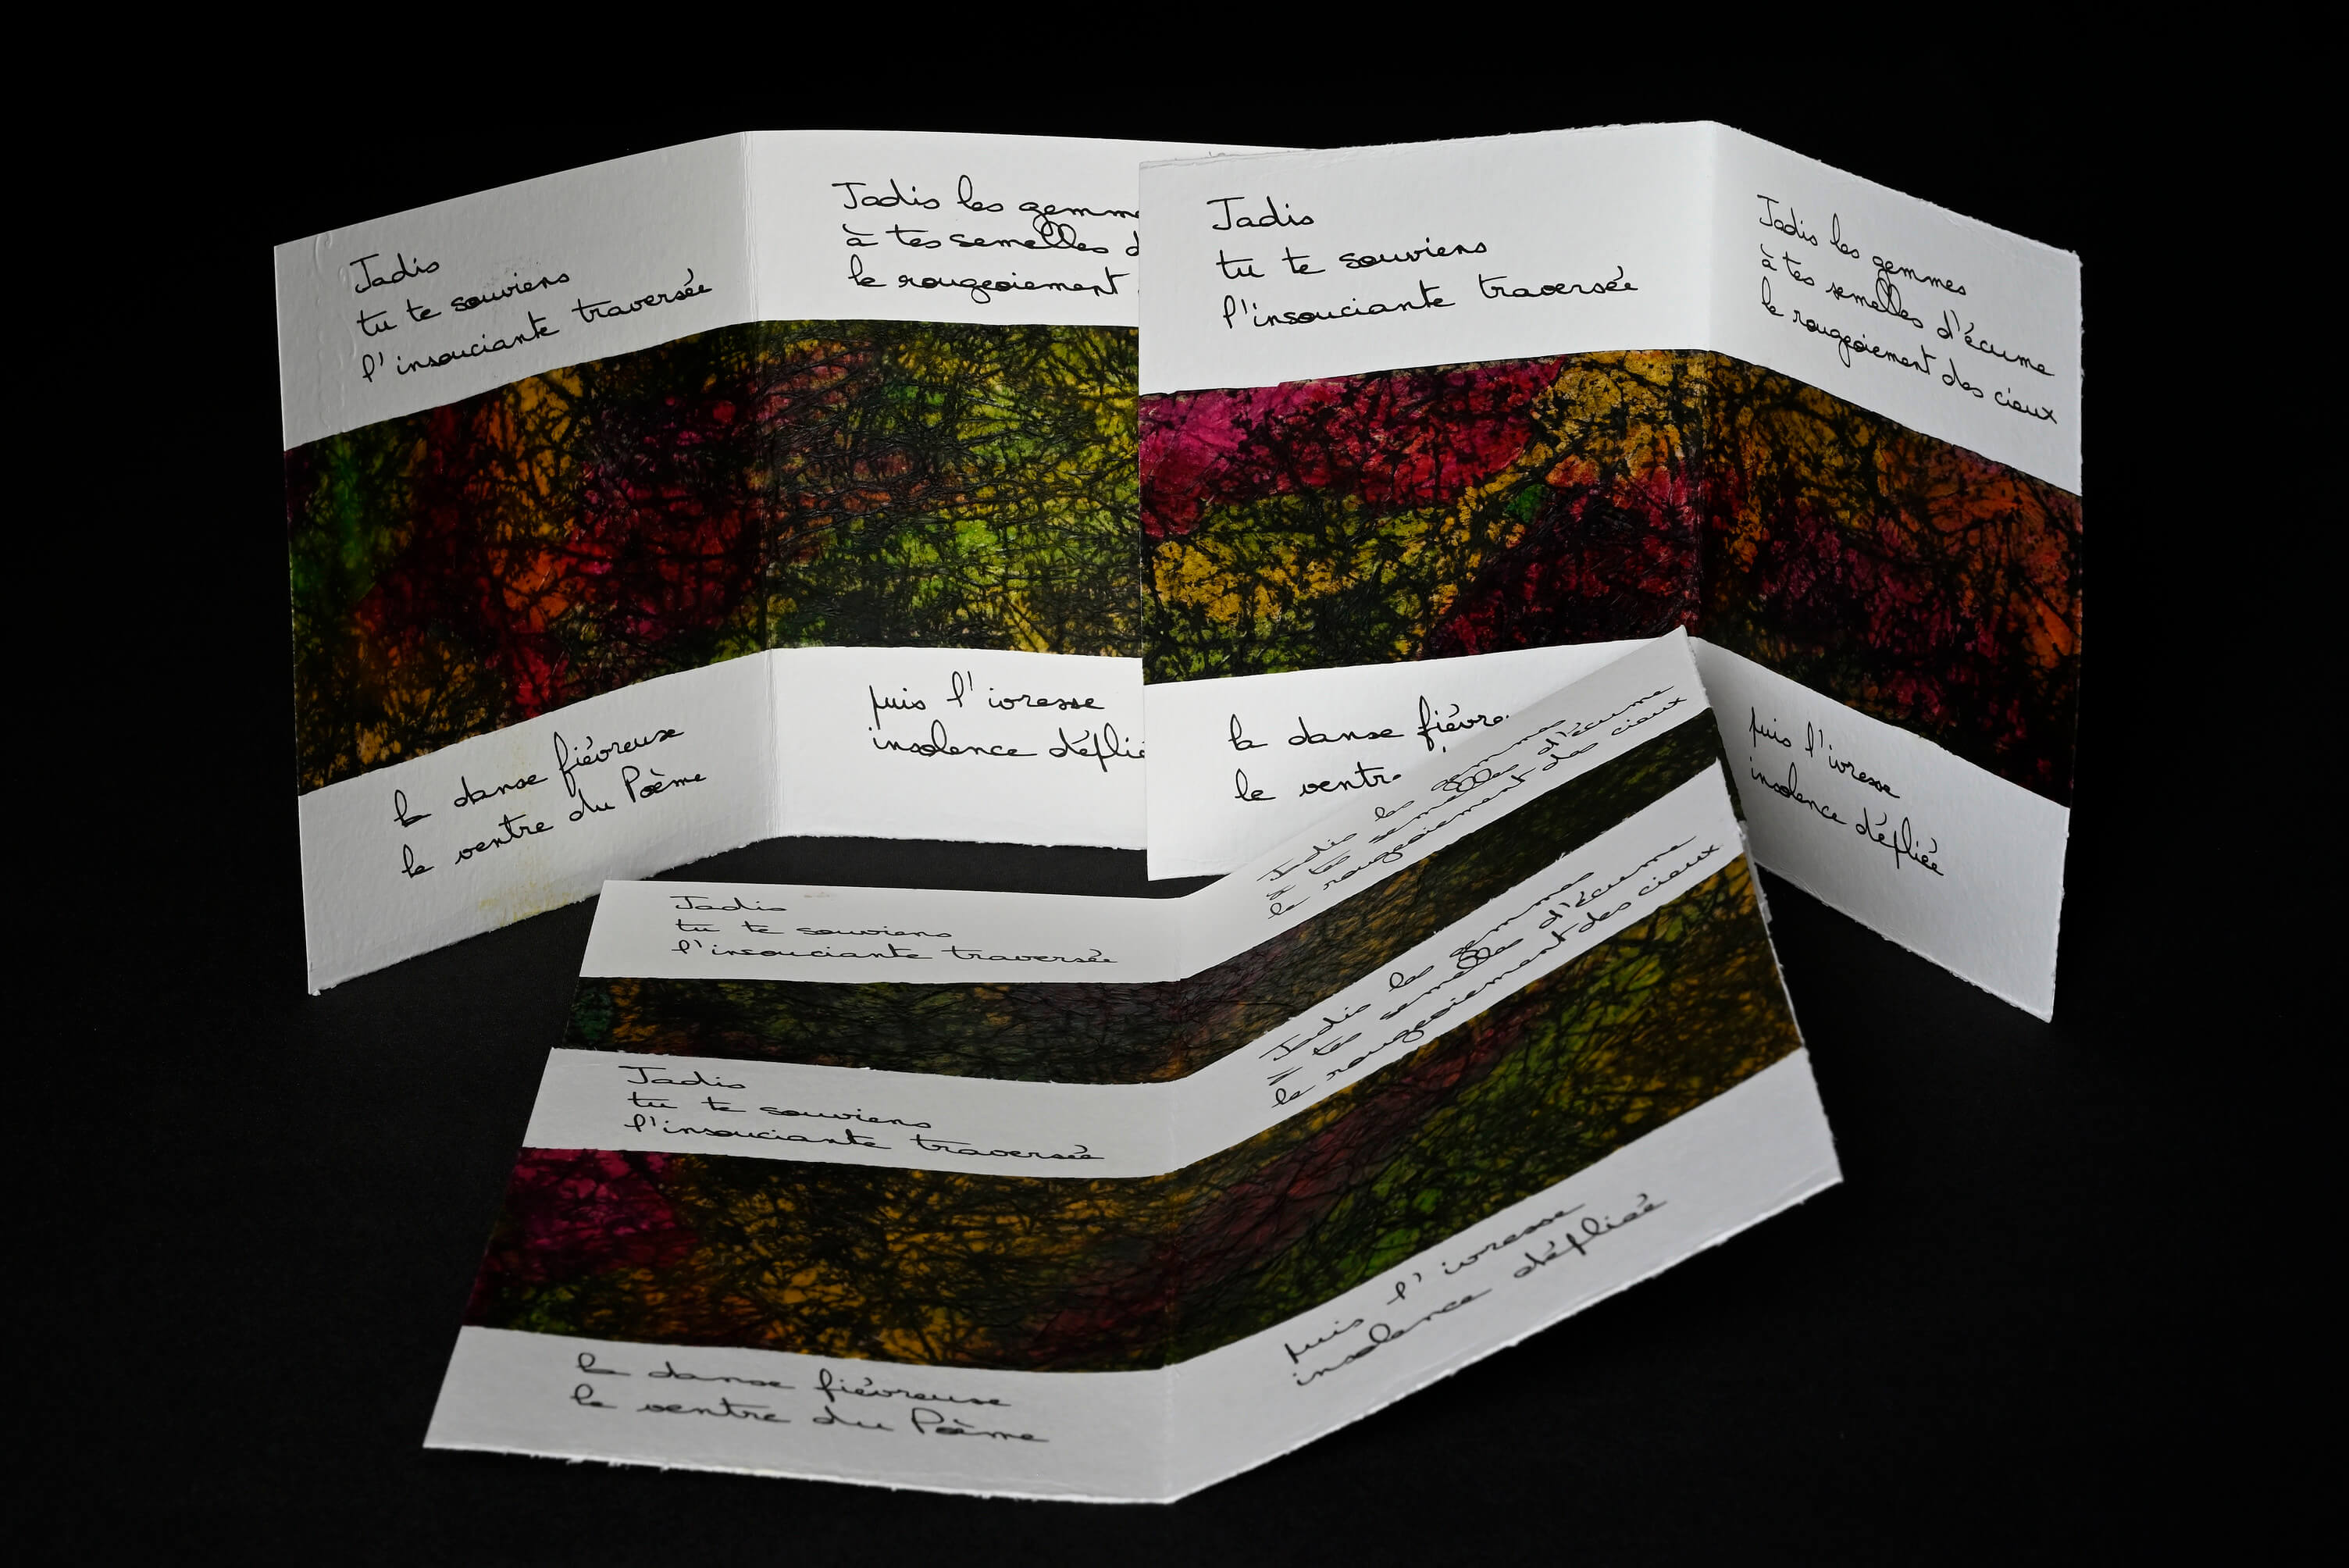 Jadis
tu te souviens
l'insouciante traversée
la danse fiévreuse
le ventre du Poème
Jadis les gemme
à tes semelles d
le rougeoiement
puis l'ivresse
insolence déplié
Jadis
tu te souviens
l'insouciante traversée
la danse fiévre
le ventr
Jadis les gemmes
à tes semelles d'écume
le rougeoiement des cieux
puis l'ivresse
insolence dépliée
Jadis
tu te souviens
l'insouciante traversée
Jadis les gemmes
à tes semelles d'écume
le rougeoiement des cieux
Jadis
tu te souviens
l'insouciante traversée
la danse fiévreuse
le ventre du Poème
Jadis les gemmes
à tes semelles d'écume
le rougeoiement des cieux
puis l'ivresse
insolence dépliée